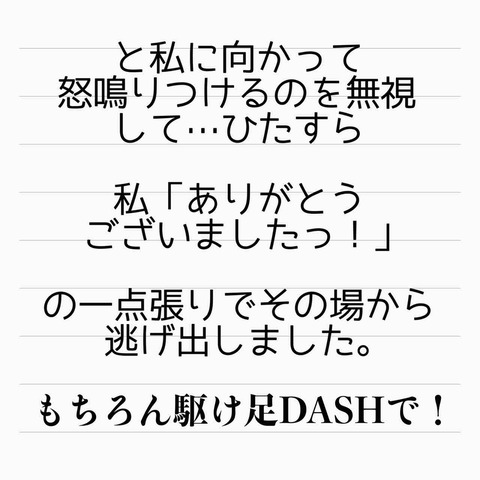 と私に向かって
怒鳴りつけるのを無視
して…ひたすら
私「ありがとう
ございましたっ！」
の一点張りでその場から
逃げ出しました。
もちろん駆け足DASHで！